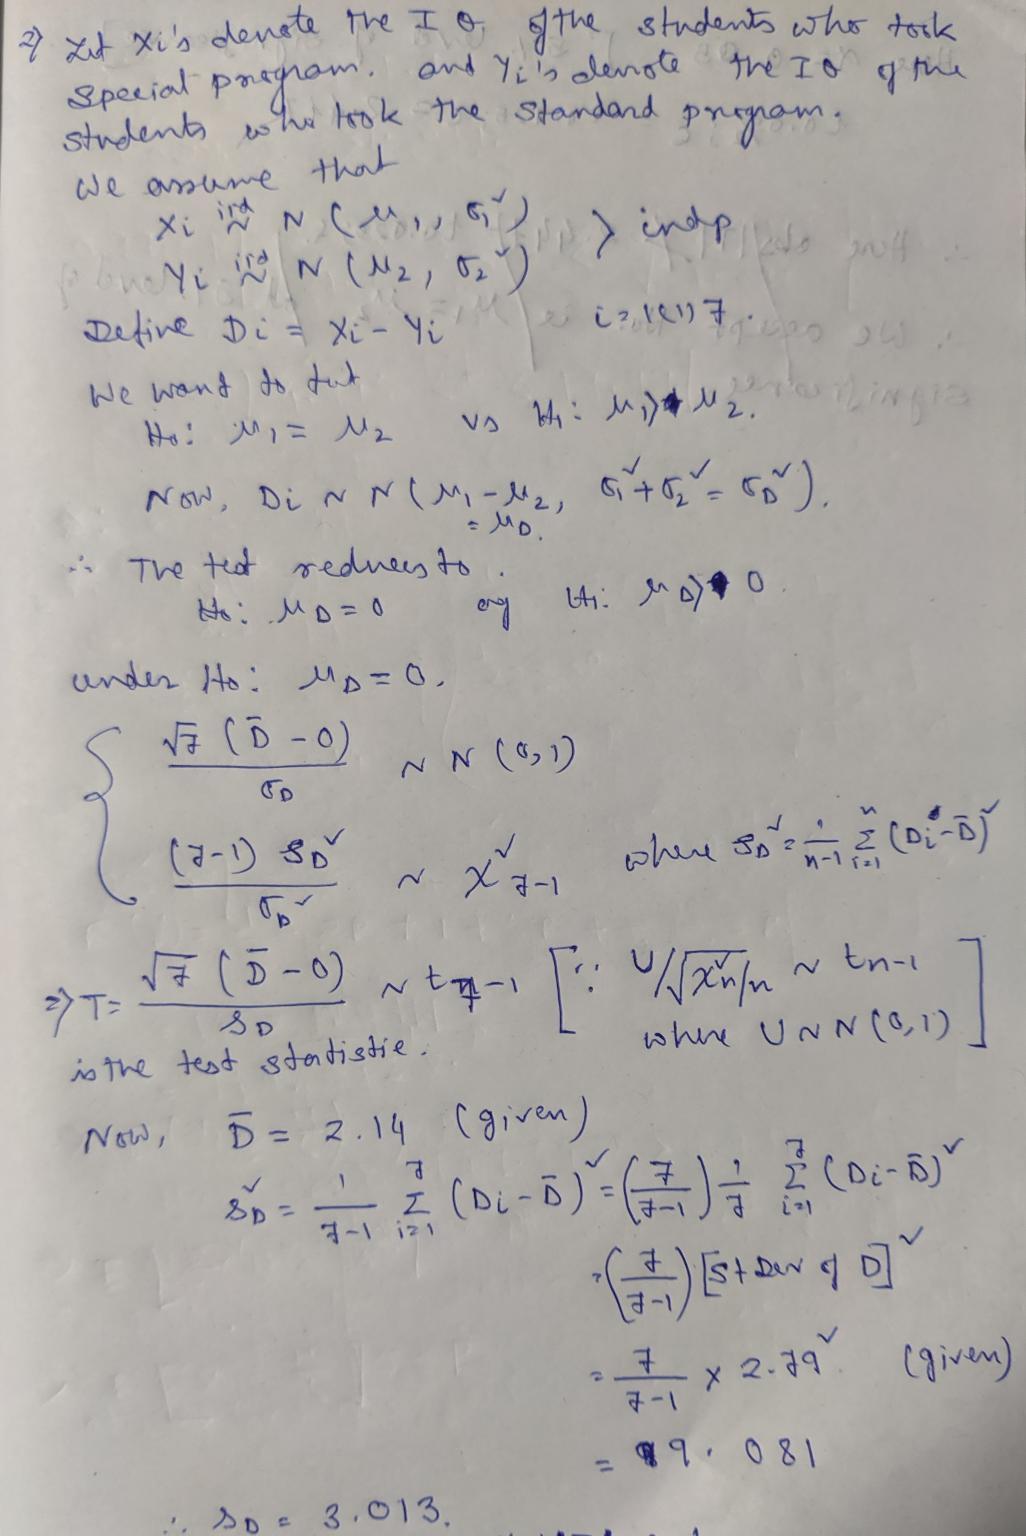 2) Let Xi's denote the IQ of the students who took
special program. and Yi's denote the IQ of the
students who took the standard program.
We assume that
Xi iid ~ N (μ1, σ1²)
Yi iid ~ N (μ2, σ2²) > indp
Define Di = Xi - Yi i = 1(1)7.
We want to test
H0: μ1 = μ2 vs H1: μ1 > μ2.
Now, Di ~ N (μ1 - μ2, σ1² + σ2² = σD²).
= μD.
∴ The test reduces to
H0: μD = 0 ag H1: μD > 0
under H0: μD = 0.
√7 (D̄ - 0) / σD ~ N (0,1)
(7-1) sD² / σD² ~ χ²7-1 where sD² = 1/(n-1) Σ i=1 n (Di - D̄)²
⇒ T = √7 (D̄ - 0) / sD ~ t7-1 [∵ U/√χ²n/n ~ tn-1
where U ~ N (0,1)]
is the test statistic.
Now, D̄ = 2.14 (given)
sD² = 1/(7-1) Σ i=1 7 (Di - D̄)² = (7/(7-1)) 1/7 Σ i=1 7 (Di - D̄)²
= (7/(7-1)) [St Dev of D]²
= 7/(7-1) × 2.79² (given)
= 9.081
∴ sD = 3.013.